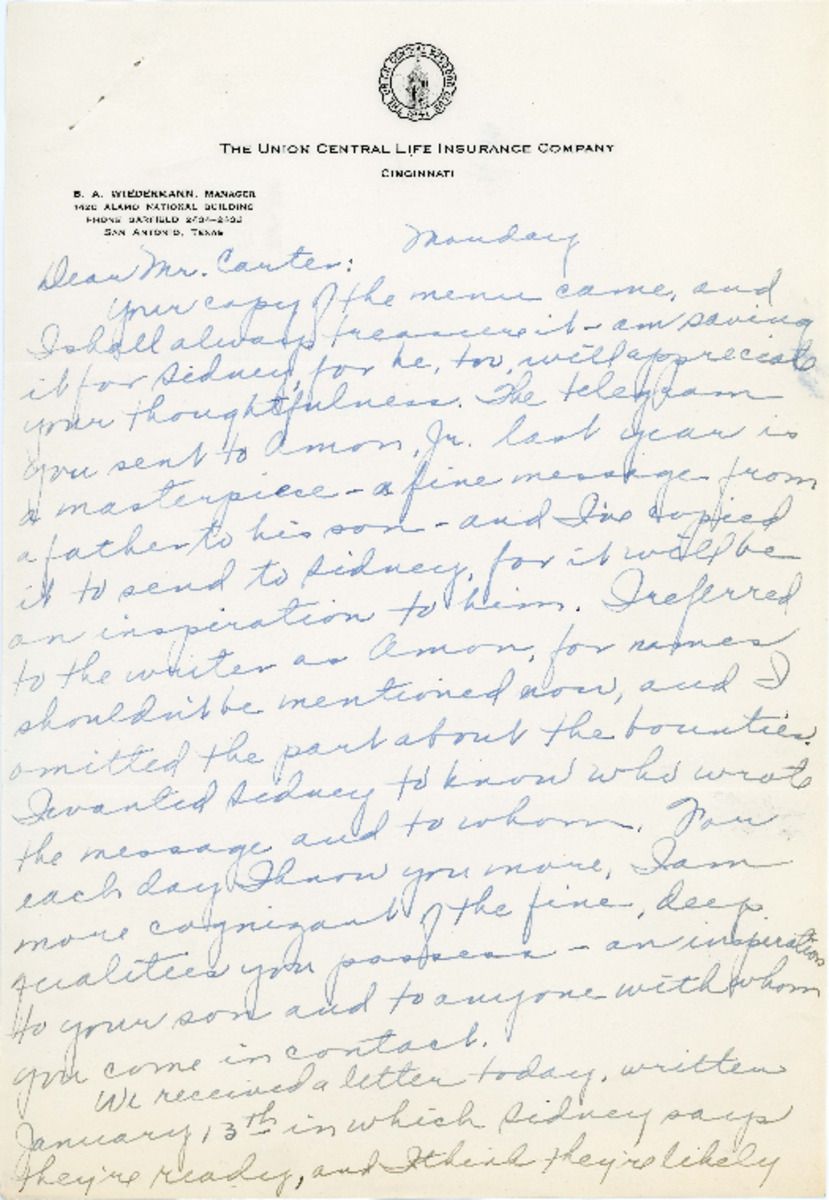 THE UNION CENTRAL LIFE INSURANCE COMPANY
CINCINNATI
B. A. WIEDERMANN, MANAGER
1420 ALAMO NATIONAL BUILDING
PHONE GARFIELD
SAN ANTONIO, TEXAS
Monday
Dear Mr. Carter:
Your copy of the menu came, and
I shall always treasure it - am saving
it for Sidney, for he, too, will appreciate
your thoughtfulness. The telegram
you sent to Amon, Jr. last year is
a masterpiece - a fine message from
a father to his son - and I've copied
it to send to Sidney, for it will be
an inspiration to him. I referred
to the writer as Amon, for names
shouldn't be mentioned now, and I
omitted the part about the bounties.
I wanted Sidney to know who wrote
the message and to whom. For
each day I know you more, I am
more cognizant of the fine, deep
qualities you possess - an inspiration
to your son and to anyone with whom
you come in contact.
We received a letter today, written
January 13th in which Sidney says
they're ready, and I think they're likely